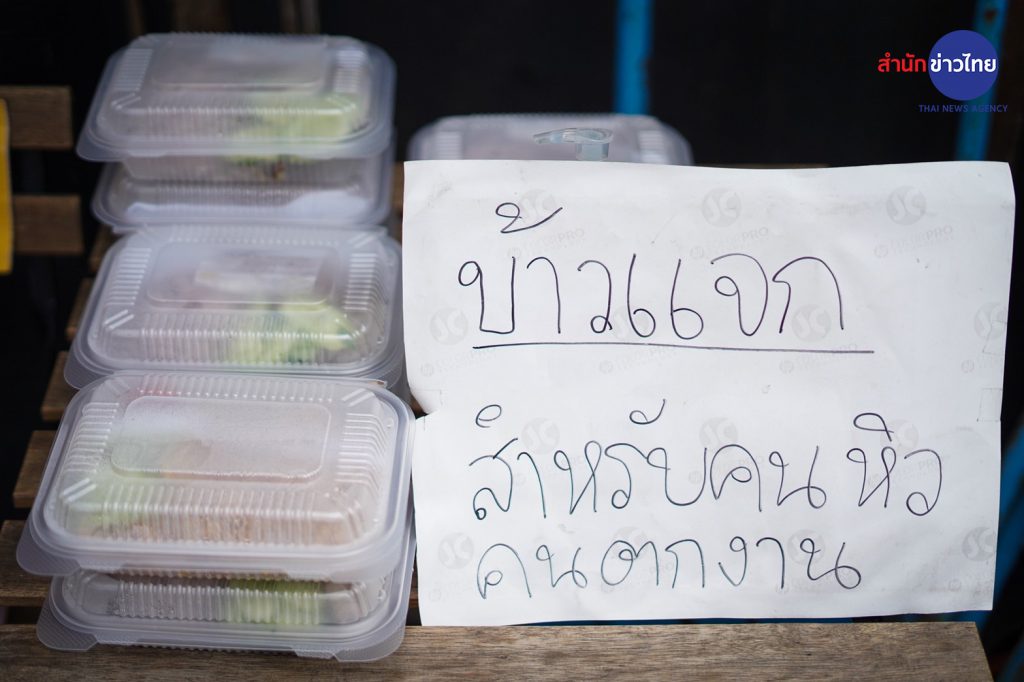 สำนักข่าวไทย
THAI NEWS AGENCY
ข้าวแจก
สำหรับคนหิว
คนตกงาน